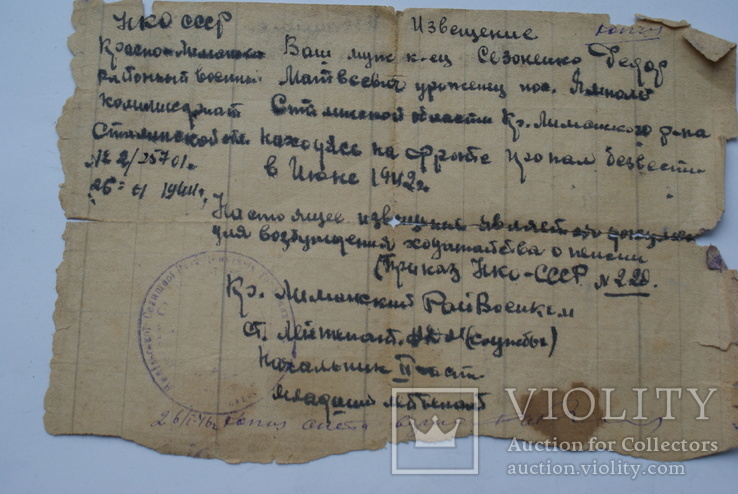 НКО СССР Извещение копия
Красно-Лиманский Ваш муж к-ец Сезоненко Федор
районный военный Матвеевич уроженец пос. Ямполь
комиссариат Сталинской области Кр. Лиманского р-на
Сталинской обл. находясь на фронте пропал безвести
№ 2/25701. в Июне 1942г.
26 = 01 1944г.
Настоящее извещение является
для возбуждения ходатайства о пенсии
(Приказ НКО-СССР № 220.
Кр. Лиманский РайВоенком
ст. Лейтенант. (службы)
Начальник II части
младший лейтенант
копия
VIOLITY
Auction for Collectors
auction.violity.com